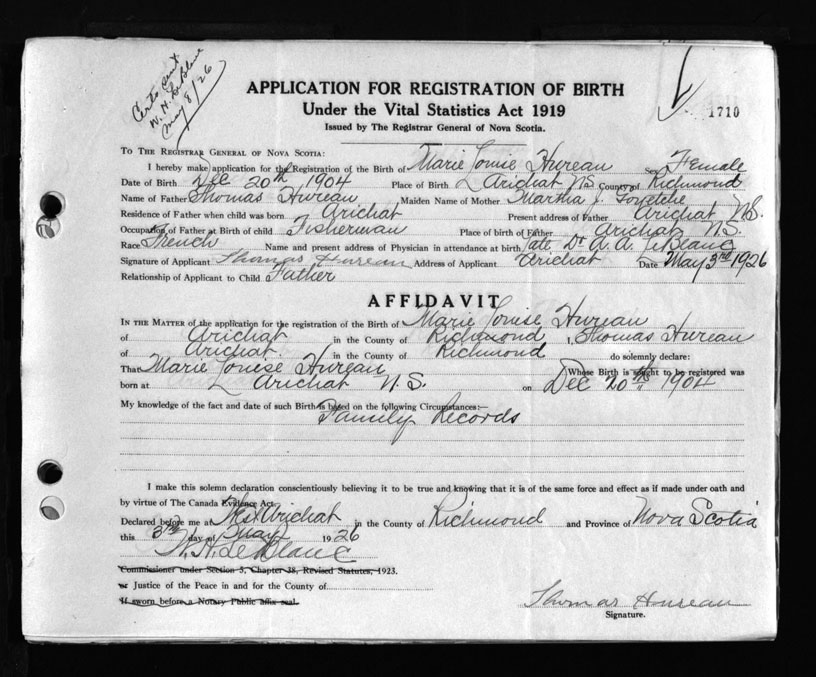 Certs sent
W. H. LeBlanc
May 8/26
APPLICATION FOR REGISTRATION OF BIRTH
Under the Vital Statistics Act 1919
1710
Issued by The Registrar General of Nova Scotia.
To The Registrar General of Nova Scotia:
I hereby make application for the Registration of the Birth of Marie Louise Hureau Sex Female
Date of Birth Dec 20th 1904 Place of Birth Arichat N.S. County of Richmond
Name of Father Thomas Hureau Maiden Name of Mother Martha J. Goyetche
Residence of Father when child was born Arichat Present address of Father Arichat N.S.
Occupation of Father at Birth of child Fisherman Place of birth of Father Arichat N.S.
Race French Name and present address of Physician in attendance at birth late Dr A. A. LeBlanc
Signature of Applicant Thomas Hureau Address of Applicant Arichat Date May 3rd 1926
Relationship of Applicant to Child Father
AFFIDAVIT
In the Matter of the application for the registration of the Birth of Marie Louise Hureau
of Arichat in the County of Richmond I, Thomas Hureau
of Arichat. in the County of Richmond do solemnly declare:
That Marie Louise Hureau Whose Birth is sought to be registered was
born at Arichat N.S. on Dec 20th 1904
My knowledge of the fact and date of such Birth is based on the following Circumstances:—
Family Records
I make this solemn declaration conscientiously believing it to be true and knowing that it is of the same force and effect as if made under oath and
by virtue of The Canada Evidence Act.
Declared before me at West Arichat in the County of Richmond and Province of Nova Scotia
this 3rd day of May 1926
W. H. LeBlanc
Commissioner under Section 3, Chapter 38, Revised Statutes, 1923.
or Justice of the Peace in and for the County of
If sworn before a Notary Public affix seal.
Thomas Hureau
Signature.